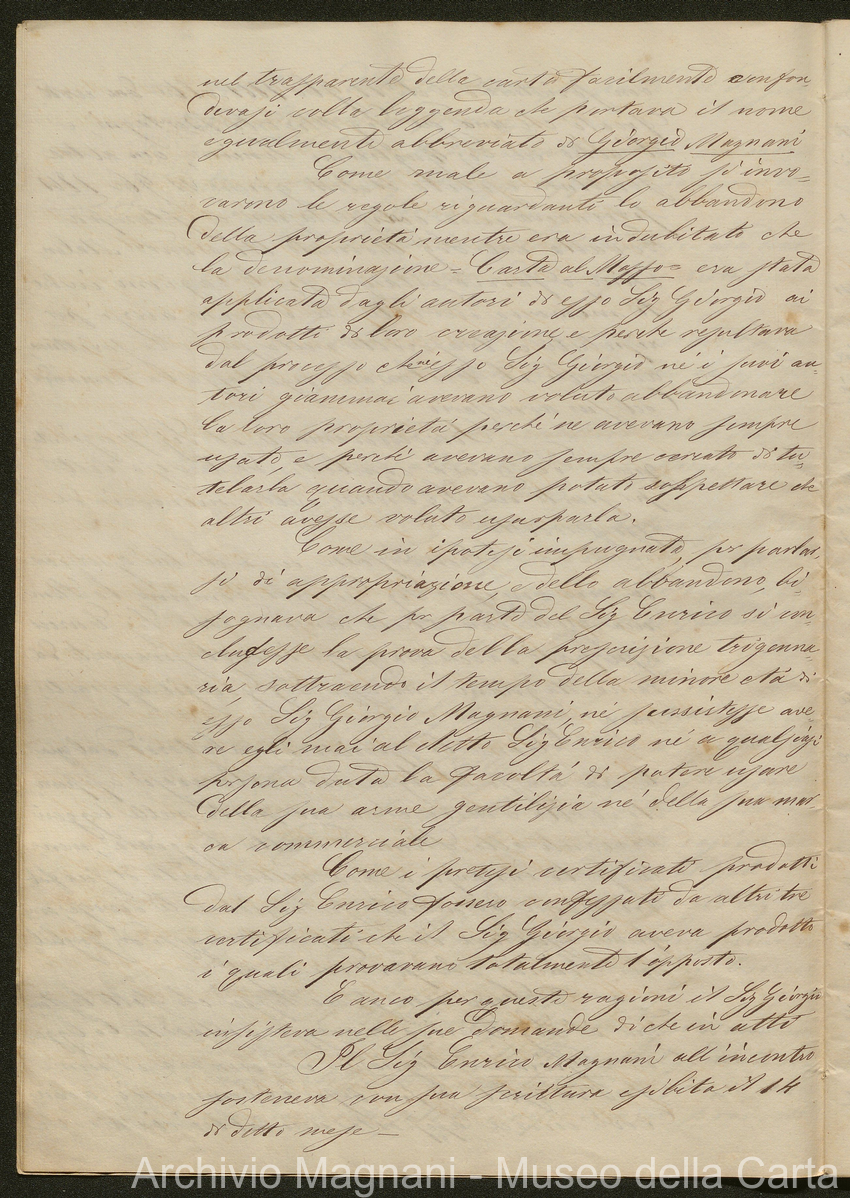 nel trasparente della carta facilmente confon-
devasi colla leggenda che portava il nome
egualmente abbreviato di Giorgio Magnani
Come male a proposito si invo-
carono le regole riguardanti lo abbandono
della proprietà mentre era indubitato che
la denominazione = Carta al Masso = era stata
applicata dagli autori di esso Sig Giorgio ai
prodotti di loro creazione, e perché resultava
dal processo che né esso Sig Giorgio né i suoi au-
tori giammai avevano voluto abbandonare
la loro proprietà perché ne avevano sempre
usato, e perché avevano sempre cercato di tu-
telarla quando avevano potuto sospettare che
altri avesse voluto usurparla.
Come in ipotesi impugnata, per parlar-
si di appropriazione, e dello abbandono, bi-
sognava che per parte del Sig Enrico si con-
cludesse la prova della prescrizione trigenna-
ria, sottraendo il tempo della minore età di
esso Sig Giorgio Magnani, né sussistesse ave-
re egli mai al detto Sig Enrico né a qualsiasi
persona data la facoltà di potere usare
della sua arme gentilizia né della sua mar-
ca commerciale
Come i pretesi certificati prodotti
dal Sig Enrico fossero confessati da altri tre
certificati che il Sig Giorgio aveva prodotto
i quali provavano totalmente l'opposto.
E anco per queste ragioni il Sig Giorgio
insisteva nelle sue domande di che in atti
Il Sig Enrico Magnani all'incontro
sosteneva con sua scrittura esibita il 14
di detto mese —
Archivio Magnani - Museo della Carta